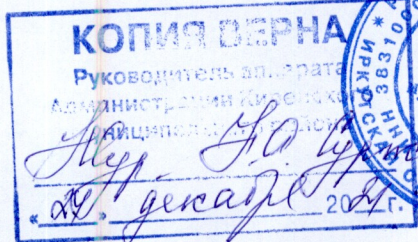 КОПИЯ ВЕРНА
Руководитель аппарата
Администрации Киренского
муниципального района
« 29 » декабря 2021 г.
ИРКУТСКАЯ
ИНН 383100